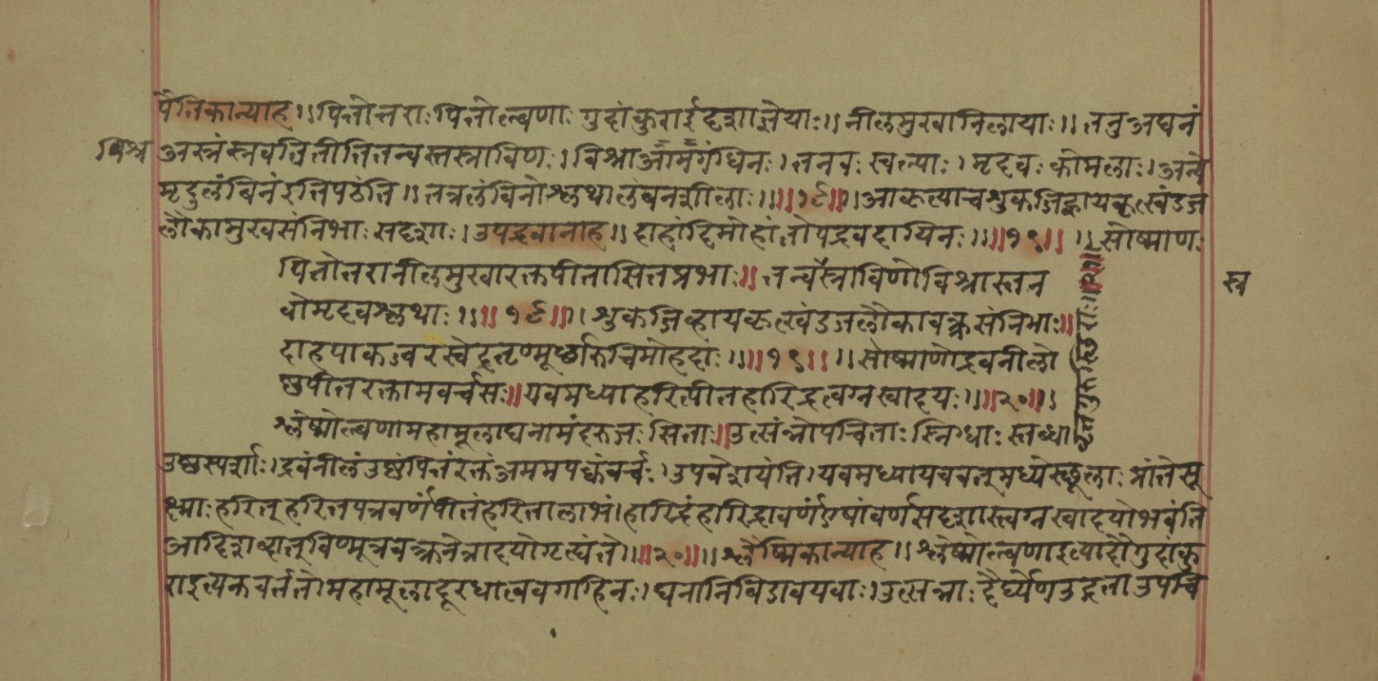 पैत्तिकान्याह ॥ पित्तोत्तराः पित्तोल्बणाः गुदांकुरा ईदृशा ज्ञेयाः ॥ नीलमुखा निलाग्राः ॥ तनु अघनं
विश्र अस्रंस्त्रवत्तितीतितन्वस्तस्त्राविणः । विश्राआमगंधिनः । तनवः स्वल्पाः । मृदवः कोमलाः । अन्ये
मृदुलंबिनंइतिपठंति ॥ तत्रलंबिनोश्लथालंबनशीलाः ॥ ॥१८॥ । आकृत्याचशुकजिह्वायकृत्खंडज
लौकामुखसंनिभाः सदृशाः । उपद्रवानाह ॥ दाहादिमोहांतोपद्रवदायिनः ॥ ॥१९॥ ॥ सोष्माणः
पित्तोत्तरानीलमुखारक्तपीतासितप्रभाः ॥ तन्वस्त्राविणोविश्रास्तन
स्त्र
वोमृदवश्लथाः ॥ ॥१८॥ । शुकजिव्हायकृत्खंडजलौकावक्त्रसंनिभाः ॥
दाहपाकज्वरस्वेदतृण्मूर्छारुचिमोहदाः ॥ ॥१९॥ ॥ सोष्माणोद्रवनीलो
ष्णपीतरक्तामवर्चसः ॥ यवमध्याहरित्पीतहारिद्रत्वग्नखादयः ॥ ॥२०॥ ।
श्लेष्मोल्बणामहामूलाघनामंदरुजः सिताः ॥ उत्संन्नोपचिताः स्निग्धाः स्तब्धा
उष्णस्पर्शाः । द्रवंनीलंउष्णंपित्तंरक्तंअममपक्वंवर्चः । उपवेशयंति । यवमध्यायववत्मध्येस्थूलाः प्रांतेसू
क्ष्माः हरित् हरितपत्रवर्णंपीतंहरितालाभं । हारिद्रंहारिद्रावर्णंएषांवर्णसदृशास्त्वग्नखादयोभवंति
आदिशब्दात् विण्मूत्रवक्त्रनेत्रादयोगृह्यंते ॥ ॥२०॥ ॥ श्लैष्मिकान्याह ॥ श्लेष्मोल्बणाइत्यादौगुदांकु
राइत्यनुवर्तते । महामूलादूरधात्ववगाहिनः । घनानिबिडावयवाः । उत्सन्नाः दैर्घ्येणउद्गताउपचि